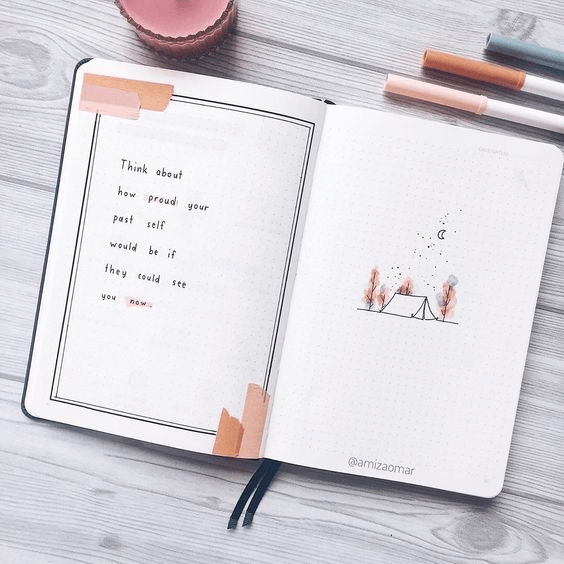 Think about
how proud your
past self
would be if
they could see
you now.
@amizaomar